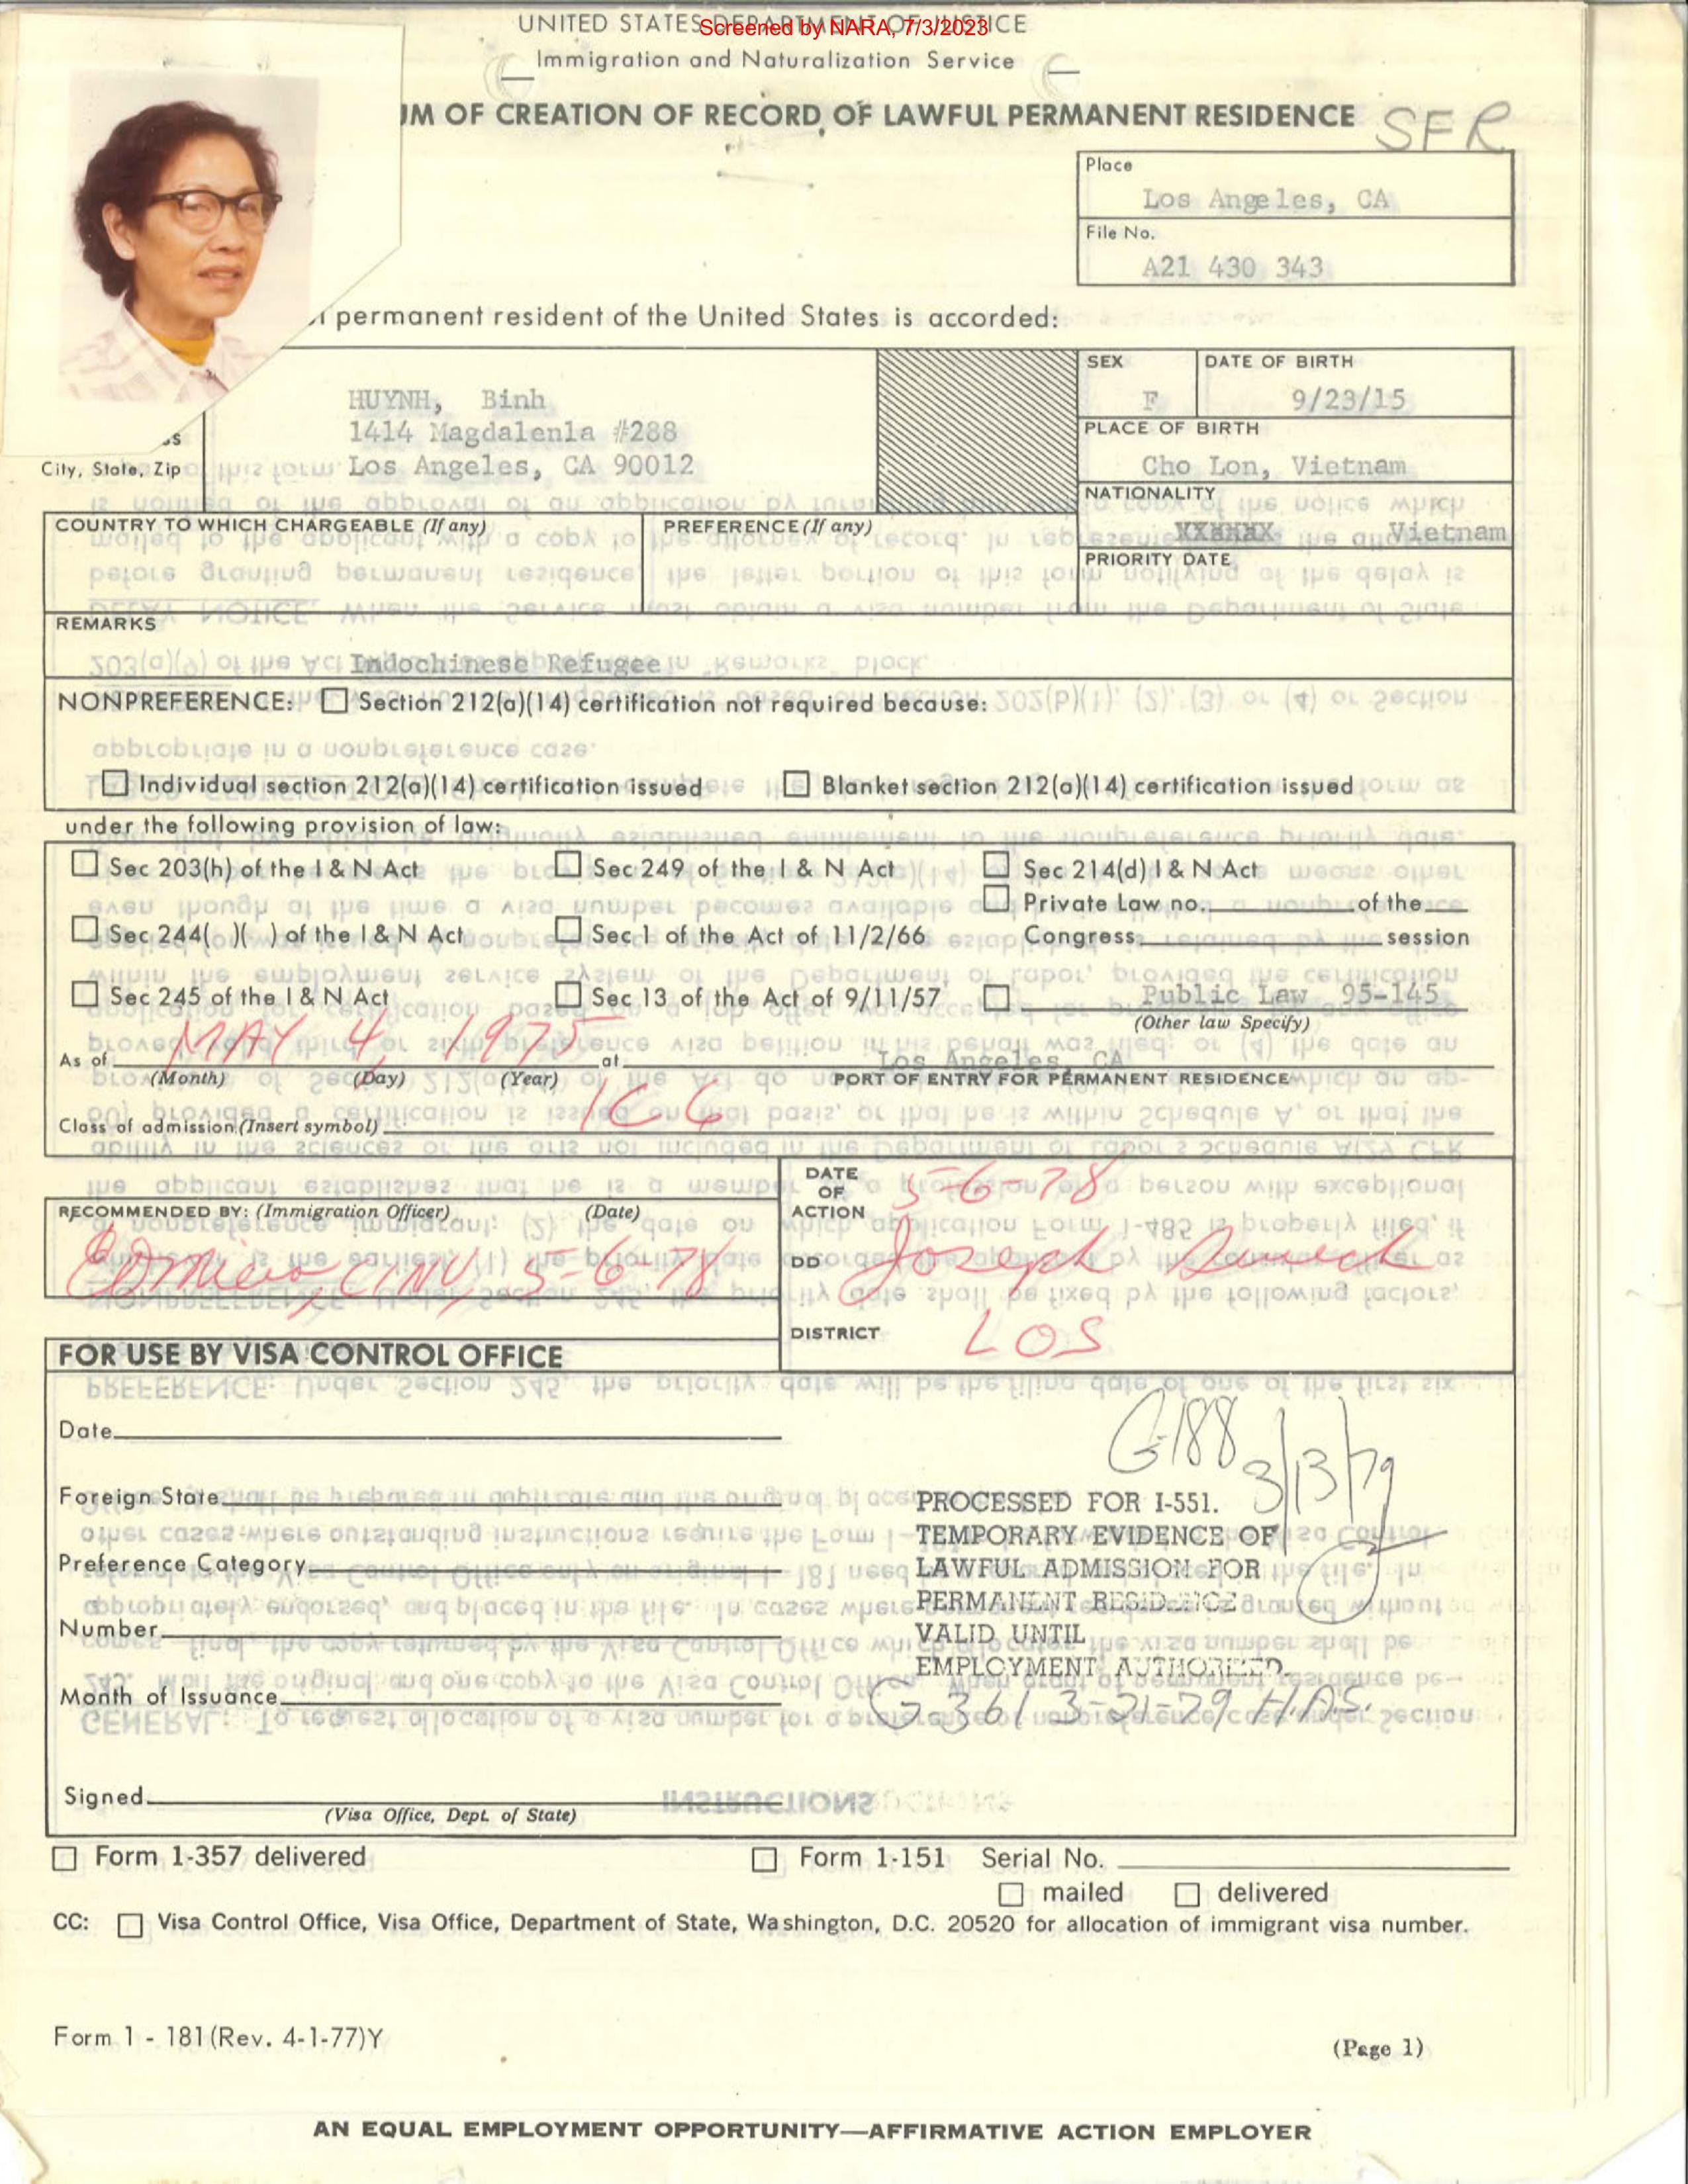 UNITED STATES DEPARTMENT OF JUSTICE
Screened by NARA, 7/3/2023
Immigration and Naturalization Service
UM OF CREATION OF RECORD OF LAWFUL PERMANENT RESIDENCE
SFR
Place
Los Angeles, CA
File No.
A21 430 343
permanent resident of the United States is accorded:
SEX
F
DATE OF BIRTH
9/23/15
HUYNH, Binh
1414 Magdalenla #288
City, State, Zip Los Angeles, CA 90012
PLACE OF BIRTH
Cho Lon, Vietnam
NATIONALITY
Vietnam
COUNTRY TO WHICH CHARGEABLE (If any)
PREFERENCE (If any)
PRIORITY DATE
REMARKS
Indochinese Refugee
NONPREFERENCE: Section 212(a)(14) certification not required because:
Individual section 212(a)(14) certification issued Blanket section 212(a)(14) certification issued
under the following provision of law:
Sec 203(h) of the I & N Act Sec 249 of the I & N Act Sec 214(d) I & N Act
Private Law no. of the
Sec 244( )( ) of the I & N Act Sec 1 of the Act of 11/2/66 Congress session
Sec 245 of the I & N Act Sec 13 of the Act of 9/11/57 Public Law 95-145
(Other law Specify)
As of MAY 4, 1975 at Los Angeles, CA
(Month) (Day) (Year) PORT OF ENTRY FOR PERMANENT RESIDENCE
Class of admission (Insert symbol) IC6
DATE OF ACTION 5-6-78
RECOMMENDED BY: (Immigration Officer) (Date)
5-6-78
DD Joseph
DISTRICT LOS
FOR USE BY VISA CONTROL OFFICE
Date
G-188 3/13/79
Foreign State
Preference Category
Number
Month of Issuance
PROCESSED FOR I-551.
TEMPORARY EVIDENCE OF
LAWFUL ADMISSION FOR
PERMANENT RESIDENCE
VALID UNTIL
EMPLOYMENT AUTHORIZED.
G-361 3-21-79 H.A.S.
Signed
(Visa Office, Dept. of State)
Form 1-357 delivered Form 1-151 Serial No.
mailed delivered
CC: Visa Control Office, Visa Office, Department of State, Washington, D.C. 20520 for allocation of immigrant visa number.
Form 1 - 181 (Rev. 4-1-77)Y
(Page 1)
AN EQUAL EMPLOYMENT OPPORTUNITY—AFFIRMATIVE ACTION EMPLOYER